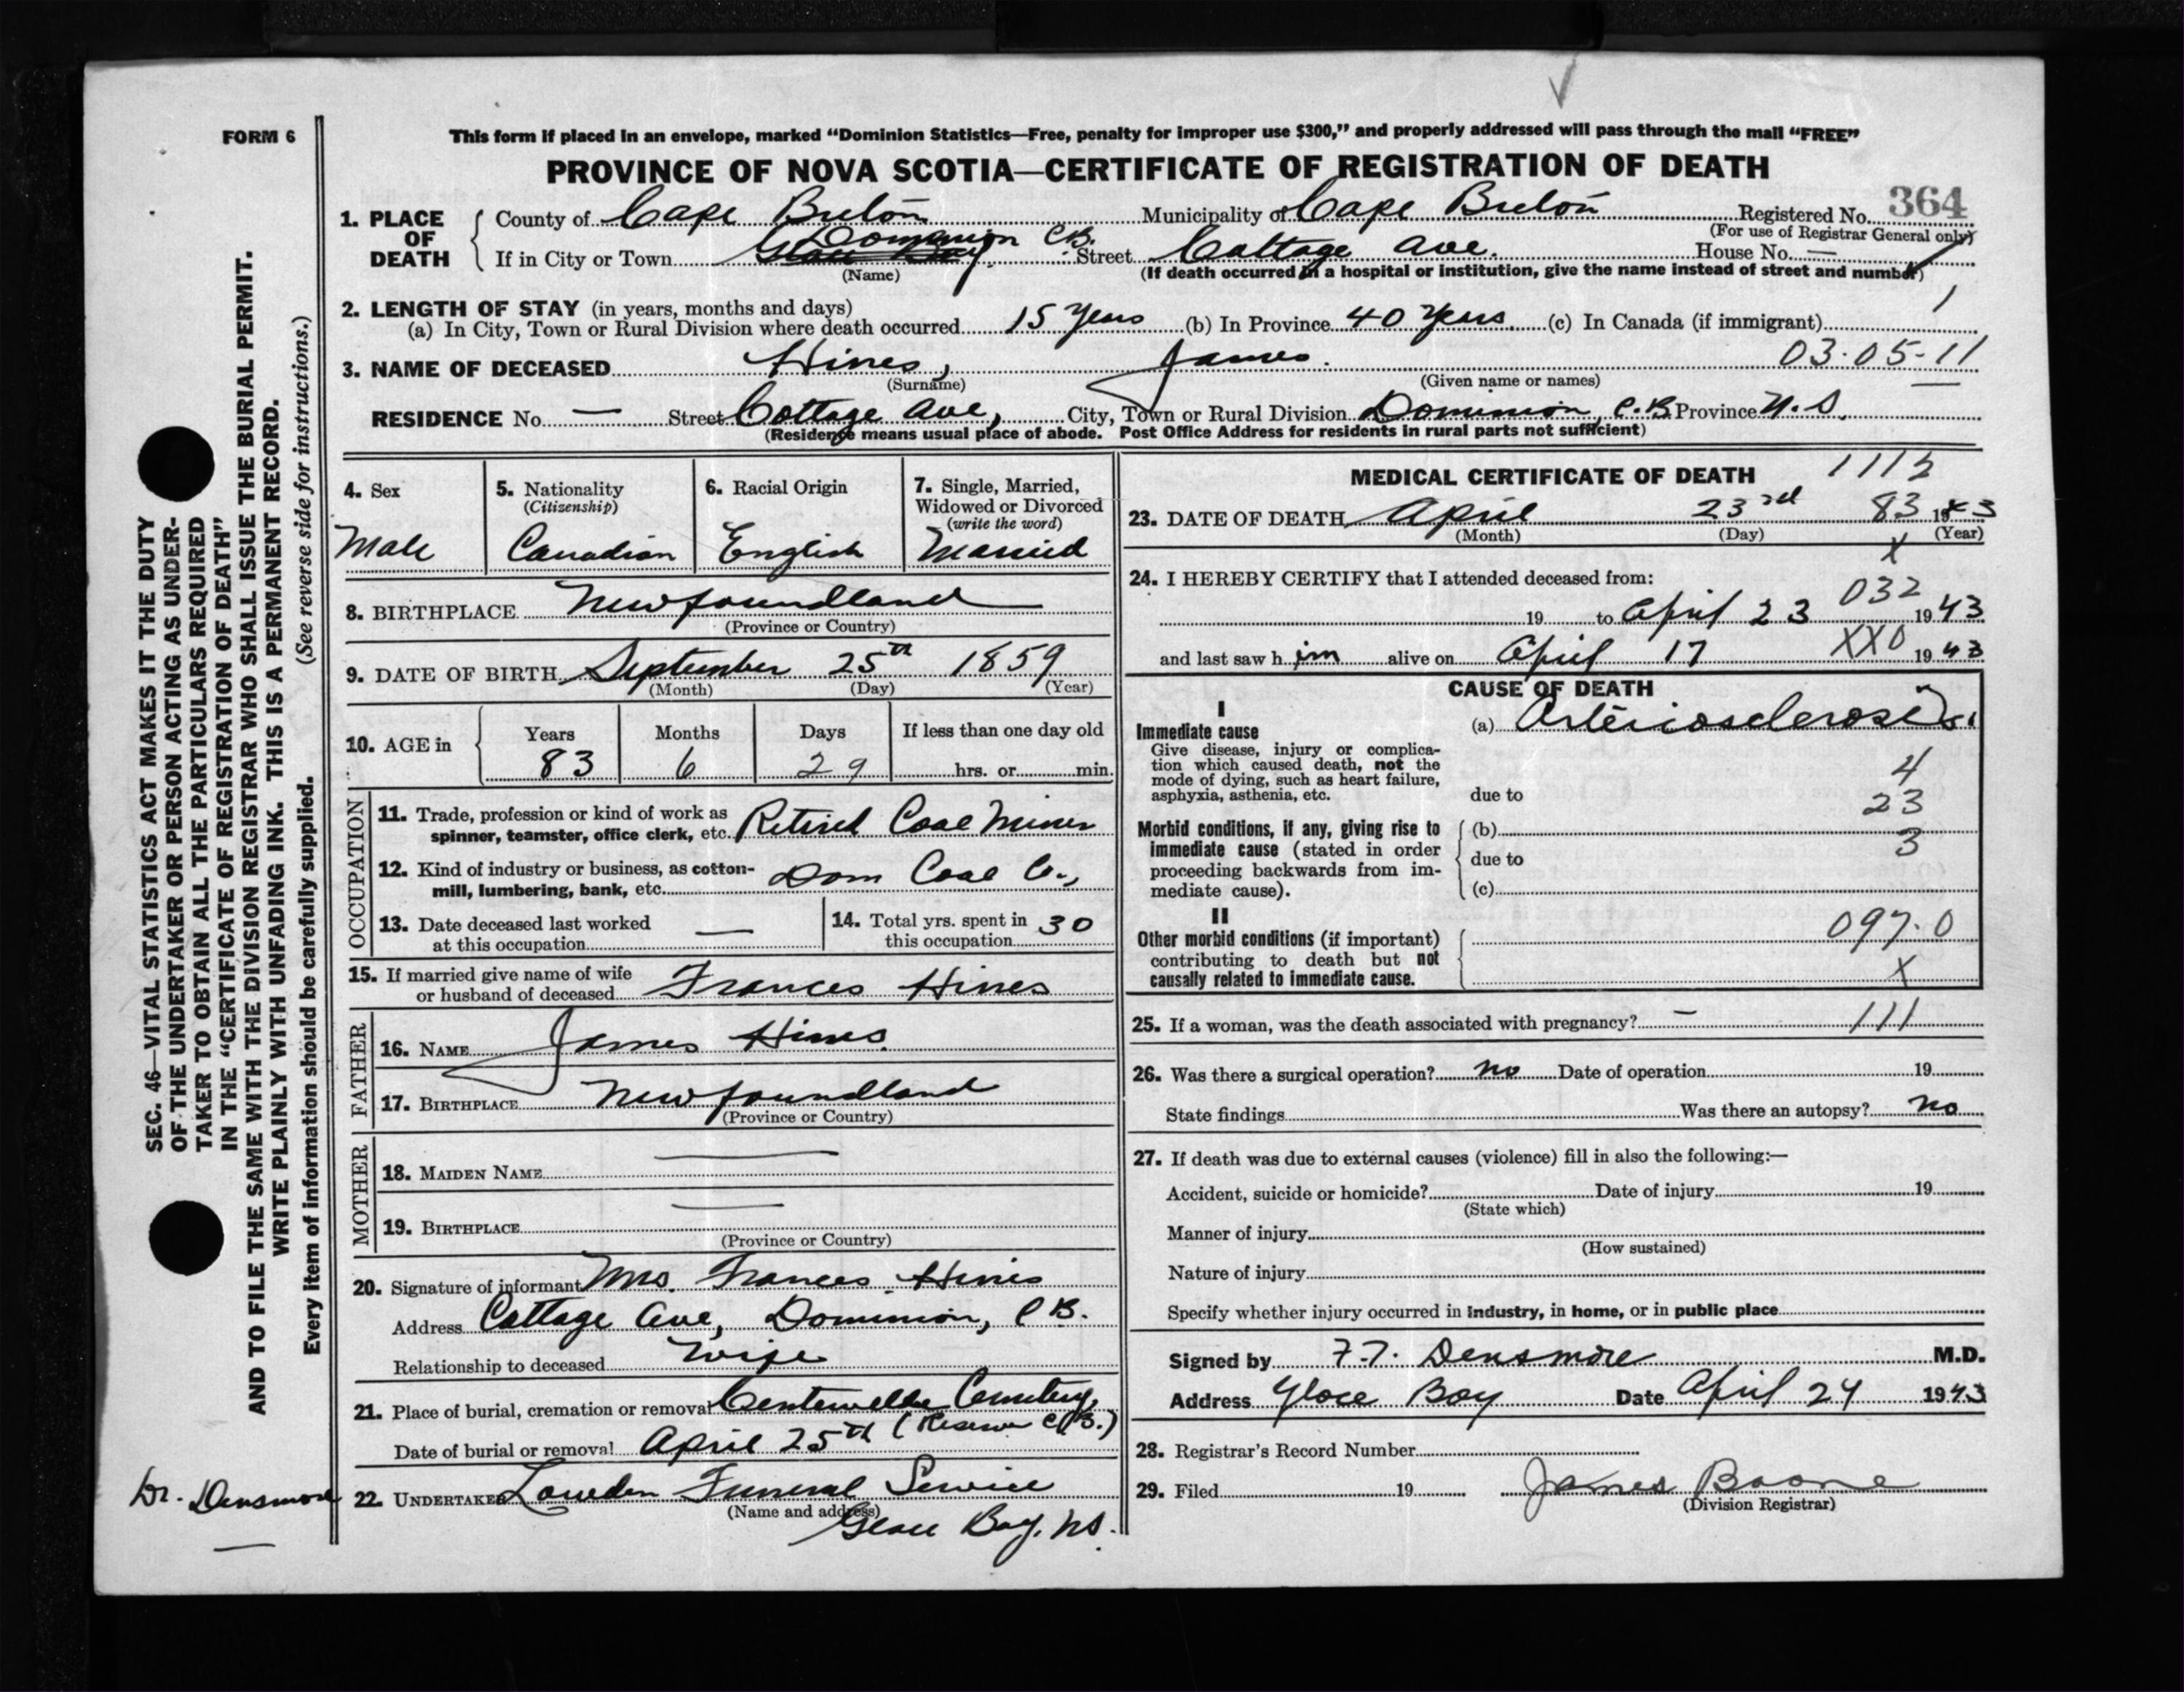 FORM 6
This form if placed in an envelope, marked “Dominion Statistics—Free, penalty for improper use $300,” and properly addressed will pass through the mail “FREE”
PROVINCE OF NOVA SCOTIA—CERTIFICATE OF REGISTRATION OF DEATH
364
1. PLACE OF DEATH
County of Cape Breton Municipality of Cape Breton Registered No.
(For use of Registrar General only)
If in City or Town Glace Bay Dominion C.B. Street Cottage Ave. House No. —
(Name) (If death occurred in a hospital or institution, give the name instead of street and number)
2. LENGTH OF STAY (in years, months and days) 1
(a) In City, Town or Rural Division where death occurred 15 Years (b) In Province 40 Years (c) In Canada (if immigrant)
3. NAME OF DECEASED Hines, James. 03-05-11
(Surname) (Given name or names)
RESIDENCE No. — Street Cottage Ave, City, Town or Rural Division Dominion, C.B. Province N.S.
(Residence means usual place of abode. Post Office Address for residents in rural parts not sufficient)
4. Sex
Male
5. Nationality
(Citizenship)
Canadian
6. Racial Origin
English
7. Single, Married, Widowed or Divorced
(write the word)
Married
8. BIRTHPLACE Newfoundland
(Province or Country)
9. DATE OF BIRTH September 25th 1859
(Month) (Day) (Year)
10. AGE in Years Months Days If less than one day old
83 6 29 hrs. or min.
OCCUPATION
11. Trade, profession or kind of work as
spinner, teamster, office clerk, etc. Retired Coal Miner
12. Kind of industry or business, as cotton-
mill, lumbering, bank, etc. Dom Coal Co.,
13. Date deceased last worked
at this occupation —
14. Total yrs. spent in
this occupation 30
15. If married give name of wife
or husband of deceased Frances Hines
FATHER
16. NAME James Hines.
17. BIRTHPLACE Newfoundland
(Province or Country)
MOTHER
18. MAIDEN NAME —
19. BIRTHPLACE —
(Province or Country)
20. Signature of informant Mrs. Frances Hines
Address Cottage Ave, Dominion, C.B.
Relationship to deceased Wife
21. Place of burial, cremation or removal Centerville Cemetery,
(Reserve C.B.)
Date of burial or removal April 25th
22. UNDERTAKER Lowden Funeral Service
(Name and address)
Glace Bay, N.S.
MEDICAL CERTIFICATE OF DEATH 1112
23. DATE OF DEATH April 23rd 83 1943
(Month) (Day) (Year)
X
24. I HEREBY CERTIFY that I attended deceased from:
032
19 to April 23 1943
and last saw h im alive on April 17 XX0 1943
CAUSE OF DEATH
I
Immediate cause
Give disease, injury or complica-
tion which caused death, not the
mode of dying, such as heart failure,
asphyxia, asthenia, etc.
(a) Arteriosclerosis.
4
due to
23
Morbid conditions, if any, giving rise to
immediate cause (stated in order
proceeding backwards from im-
mediate cause).
(b)
3
due to
(c)
II
Other morbid conditions (if important)
contributing to death but not
causally related to immediate cause.
097.0
X
25. If a woman, was the death associated with pregnancy? — 111
26. Was there a surgical operation? no Date of operation 19
State findings Was there an autopsy? no
27. If death was due to external causes (violence) fill in also the following:—
Accident, suicide or homicide? Date of injury 19
(State which)
Manner of injury
(How sustained)
Nature of injury
Specify whether injury occurred in industry, in home, or in public place
Signed by F.T. Densmore M.D.
Address Glace Bay Date April 24 1943
28. Registrar's Record Number
29. Filed 19 James Boone
(Division Registrar)
SEC. 46—VITAL STATISTICS ACT MAKES IT THE DUTY
OF THE UNDERTAKER OR PERSON ACTING AS UNDER-
TAKER TO OBTAIN ALL THE PARTICULARS REQUIRED
IN THE “CERTIFICATE OF REGISTRATION OF DEATH”
AND TO FILE THE SAME WITH THE DIVISION REGISTRAR WHO SHALL ISSUE THE BURIAL PERMIT.
WRITE PLAINLY WITH UNFADING INK. THIS IS A PERMANENT RECORD.
Every item of information should be carefully supplied. (See reverse side for instructions.)
Dr. Densmore